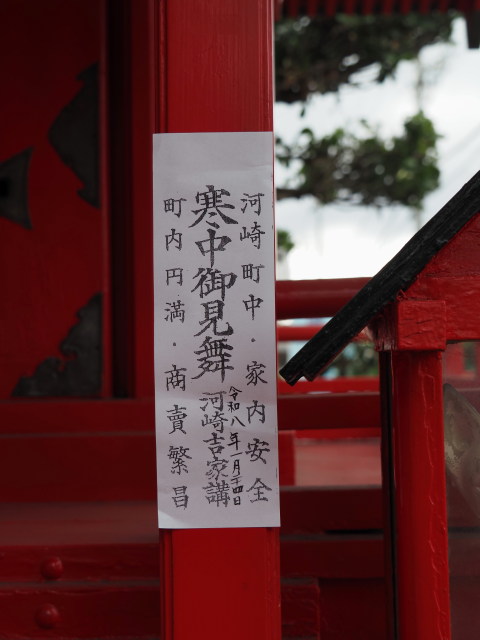 河崎町中・家内安全
寒中御見舞
令和八年一月二十四日
河崎吉家講
町内円満・商賣繁昌